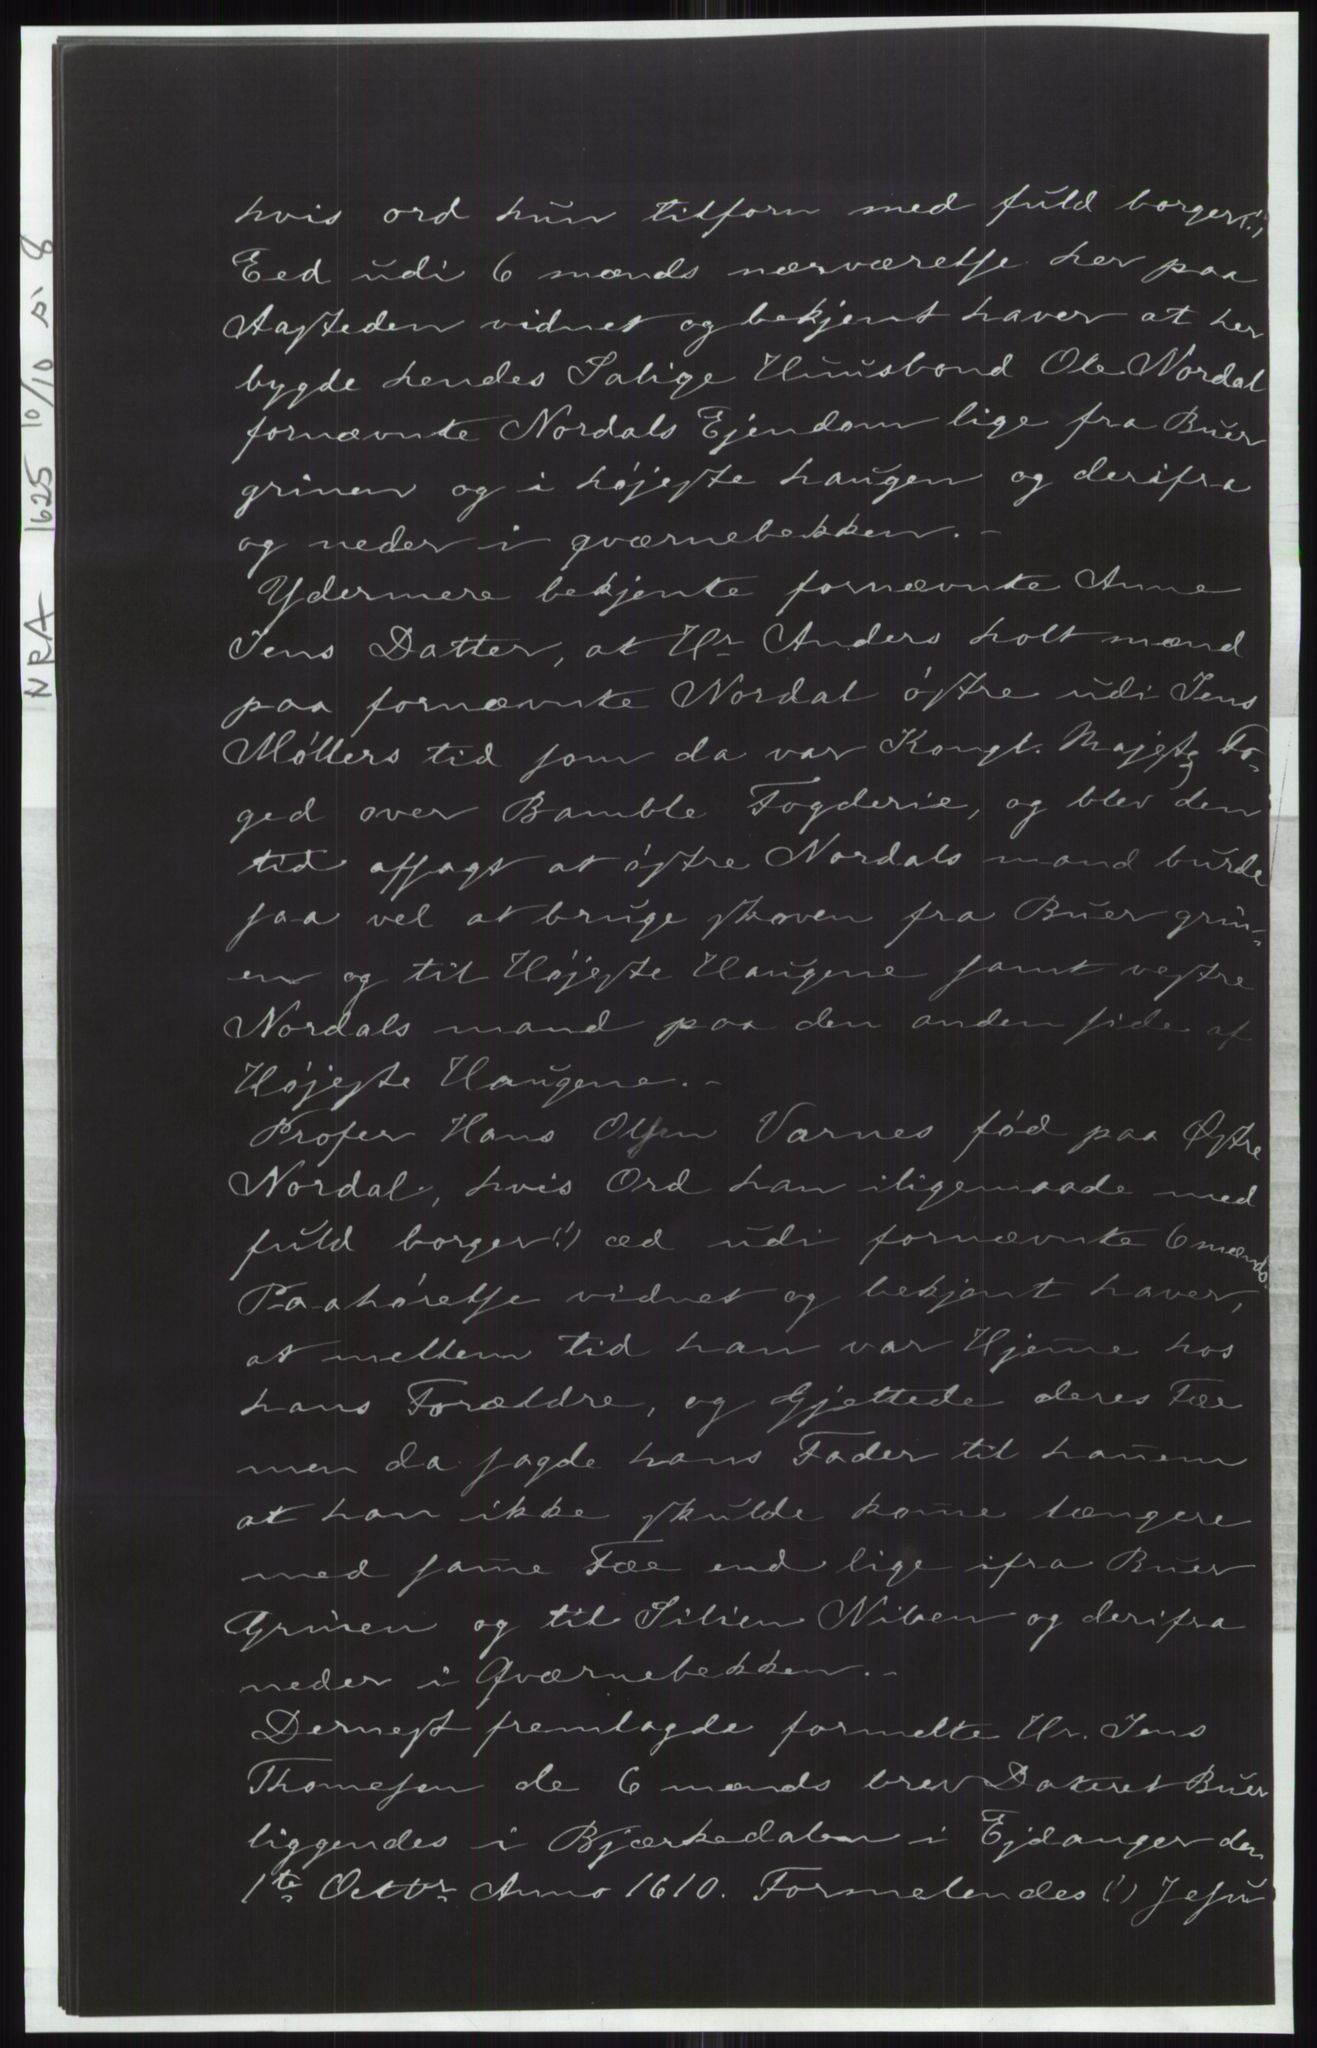 NRA 1625 10/10 s. 8
hvis ord hun tilforn med fuld borger(!)
Eed udi 6 mænds nærværelse her paa
Aasteden vidnet og bekjent haver at her
bygde hendes Salige Huusbond Ole Nordal
fornævnte Nordals Ejendom lige fra Buer
grinen og i højeste haugen og derifra
og neder i qværnebekken. –
Ydermere bekjente fornævnte Anne
Jens Datter, at Hr Anders holt mænd
paa fornævnte Nordal östre udi Jens
Möllers tid som da var Kongl. Majestz Fo-
ged over Bamble Fogderie, og blev den
tid affagt at östre Nordals mand burde
saa vel at bruge skoven fra Buer grin-
en og til Højeste Haugene samt vestre
Nordals mand paa den anden side af
Højeste Haugene. –
Profer Hans Olsen Varnes fød paa Østre
Nordal, hvis Ord han iligemaade med
fuld borger(!) æd udi fornævnte 6 mænds
Paahörelse vidnet og bekjent haver,
at mellem tid han var Hjem̄e hos
hans Forældre, og Gjettede deres Fæe
men da sagde hans Fader til han̄em
at han ikke skulde kom̄e længere
med sam̄e Fæe end lige ifra Buer
Grinen og til Silien Niben og derifra
neder i Qværnebekken. –
Dernest fremlagde formelte Hr. Jens
Thomesen de 6 mænds brev Dateret Buer
liggendes i Bjærkedalen i Ejdanger den
1te Octbr Anno 1610. Formelendes (!) Jesu